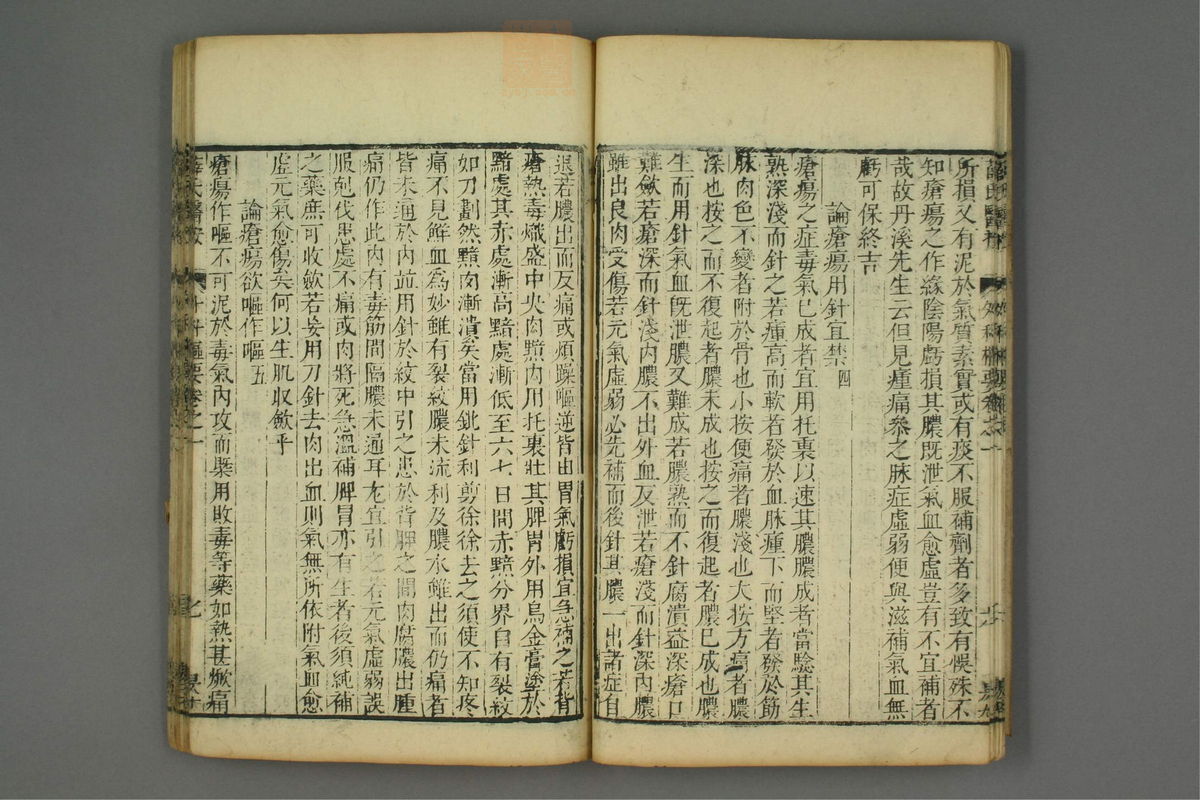 所損又有泥於氣質素實或有痰不服補劑者多致有悞殊不
知瘡瘍之作緣陰陽虧損其膿既泄氣血愈虛豈有不宜補者
哉故丹溪先生云但見腫痛參之脉症虛弱便與滋補氣血無
虧可保終吉
論瘡瘍用針宜禁四
瘡瘍之症毒氣已成者宜用托裏以速其膿膿成者當驗其生
熟深淺而針之若瘇高而軟者發於血脉瘇下而堅者發於筋
脉肉色不變者附於骨也小按便痛者膿淺也大按方痛者膿
深也按之而不復起者膿未成也按之而復起者膿已成也膿
生而用針氣血既泄膿又難成若膿熟而不針腐潰益深瘡口
難斂若瘡深而針淺內膿不出外血反泄若瘡淺而針深內膿
雖出良肉受傷若元氣虛弱必先補而後針其膿一出諸症自
退若膿出而反痛或煩躁嘔逆皆由胃氣虧損宜急補之若背
瘡熱毒熾盛中央肉黯內用托裏壯其脾胃外用烏金膏塗於
黯處其赤處漸高黯處漸低至六七日間赤黯分界自有裂紋
如刀劃然黯肉漸潰矣當用銚針利剪徐徐去之須使不知疼
痛不見鮮血為妙雖有裂紋膿未流利及膿水雖出而仍痛者
皆未通於內並用針於紋中引之患於背胛之間肉腐膿出腫
痛仍作此內有毒筋間隔膿未通耳尤宜引之若元氣虛弱誤
服尅伐患處不痛或肉將死急溫補脾胃亦有生者後須純補
之藥庶可收斂若妄用刀針去肉出血則氣無所依附氣血愈
虛元氣愈傷矣何以生肌收斂乎
論瘡瘍欲嘔作嘔五
瘡瘍作嘔不可泥於毒氣內攻而槩用敗毒等藥如熱甚焮痛
薛氏醫案